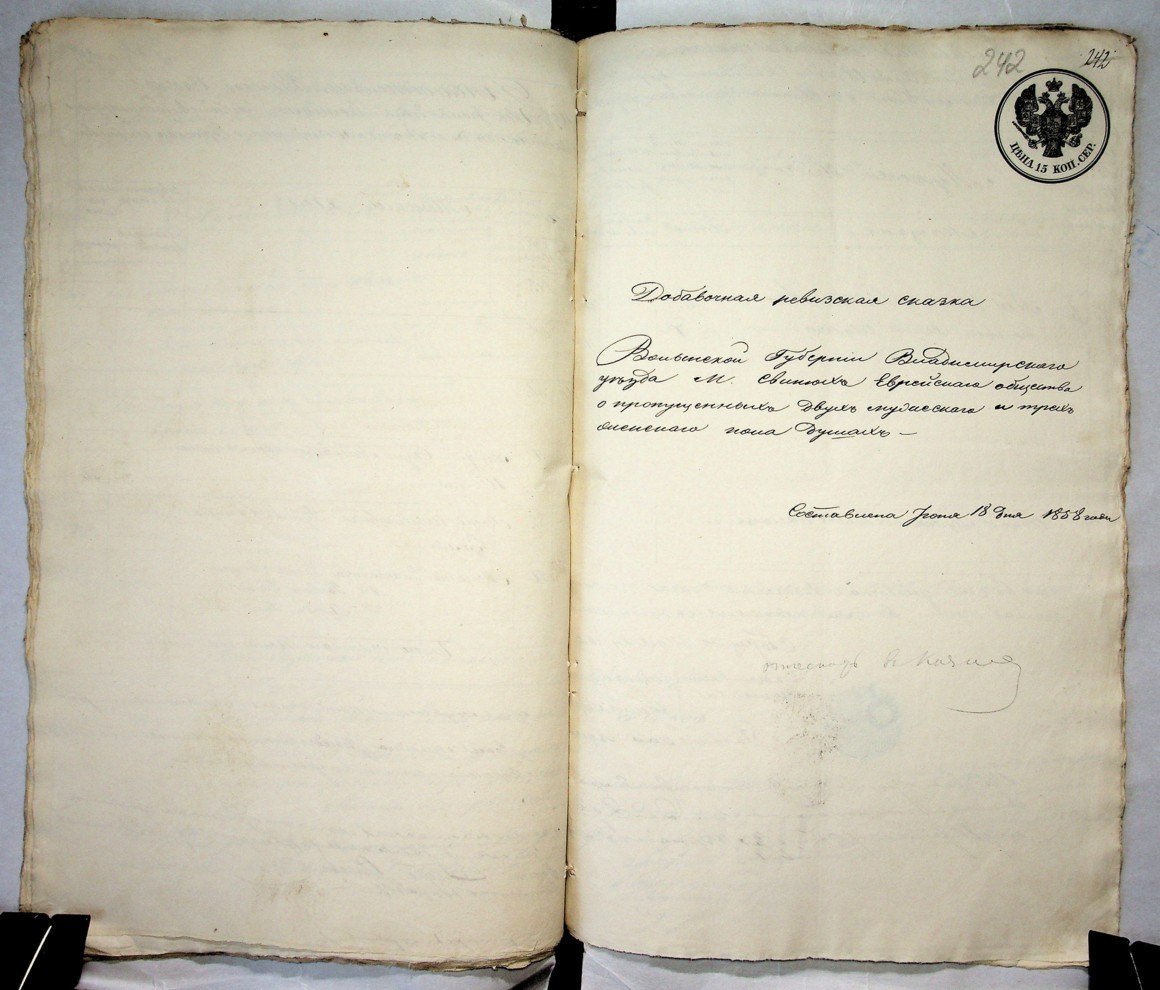 242
242
ЦѢНА 15 КОП. СЕР.
Добавочная ревизская сказка
Волынской Губерніи Владимирскаго
уѣзда М. Свинюхъ Еврейскаго общества
о пропущенныхъ двухъ мужескаго и трехъ
женскаго пола душахъ —
Составлена Іюня 18 дня 1858 года